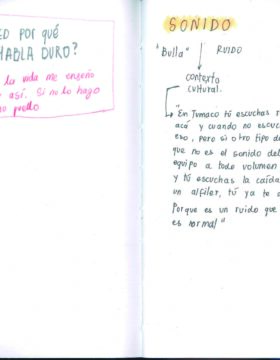 ED POR QUÉ
HABLA DURO?
la vida me enseñó
así. Si no lo hago
SONIDO
"Bulla"
RUIDO
contexto
cultural.
"En Tumaco tú escuchas
acá y cuando no escuc
eso, pero si otro tipo de
que no es el sonido del
equipo a todo volumen
y tú escuchas la caída
un alfiler, tú ya te
Porque es un ruido que
es normal"